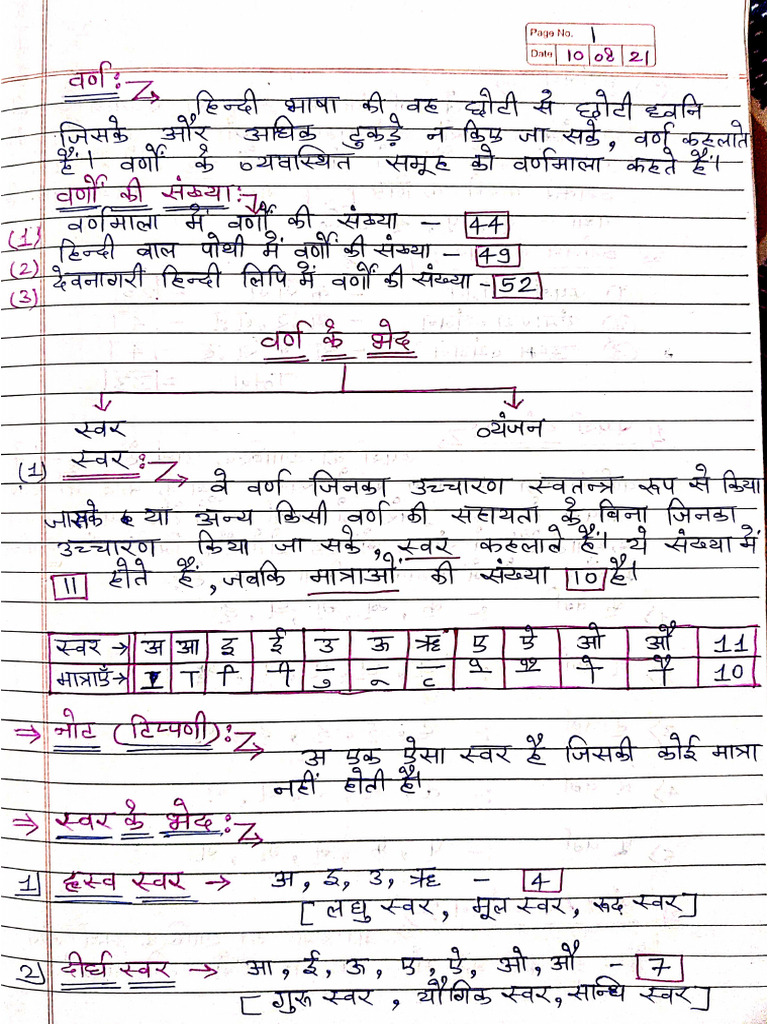 Page No. 1
Date 10 08 21
वर्ण :→
हिन्दी भाषा की वह छोटी से छोटी ध्वनि
जिसके और अधिक टुकड़े न किए जा सके, वर्ण कहलाते
हैं। वर्णों के व्यवस्थित समूह को वर्णमाला कहते हैं।
वर्णों की संख्या :→
(1) वर्णमाला में वर्णों की संख्या – 44
(2) हिन्दी बाल पोथी में वर्णों की संख्या – 49
(3) देवनागरी हिन्दी लिपि में वर्णों की संख्या – 52
वर्ण के भेद
स्वर व्यंजन
(1) स्वर :→
वे वर्ण जिनका उच्चारण स्वतन्त्र रूप से किया
जासके या अन्य किसी वर्ण की सहायता के बिना जिनका
उच्चारण किया जा सके, स्वर कहलाते हैं। ये संख्या में
11 होते हैं, जबकि मात्राओं की संख्या 10 है।
स्वर → अ आ इ ई उ ऊ ऋ ए ऐ ओ औ 11
मात्राएँ → ा ि ी ु ू ृ े ै ो ौ 10
⇒ नोट (टिप्पणी) :→
अ एक ऐसा स्वर है जिसकी कोई मात्रा
नहीं होती है।
⇒ स्वर के भेद :→
1) ह्रस्व स्वर → अ, इ, उ, ऋ – 4
[ लघु स्वर, मूल स्वर, रूद स्वर ]
2) दीर्घ स्वर → आ, ई, ऊ, ए, ऐ, ओ, औ – 7
[ गुरू स्वर, यौगिक स्वर, सान्धि स्वर ]